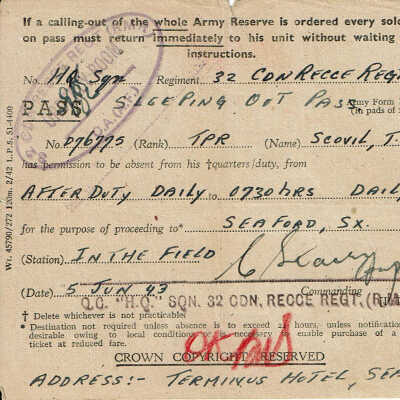 If a calling-out of the whole Army Reserve is ordered every sol
on pass must return immediately to his unit without waiting
instructions.
No. HQ Sqn Regiment 32 CDN RECCE REGT
PASS SLEEPING OUT PASS Army Form
(in pads of
No. D76775 (Rank) TPR (Name) SCOVIL, T.
has permission to be absent from his †quarters/duty, from
AFTER DUTY DAILY to 0730 HRS DAIL
for the purpose of proceeding to* SEAFORD, SX.
(Station) IN THE FIELD
(Date) 5 JUN 43 Commanding
O.C. "H.Q." SQN. 32 CDN. RECCE REGT. (R.
† Delete whichever is not practicable
* Destination not required unless absence is to exceed hours, unless notification
desirable owing to local conditions necessary to enable purchase of a
ticket at reduced fare.
CROWN COPYRIGHT RESERVED
ADDRESS:- TERMINUS HOTEL, SEA
Wt. 45790/272 120m. 2/42 L.P.S. 51-4400